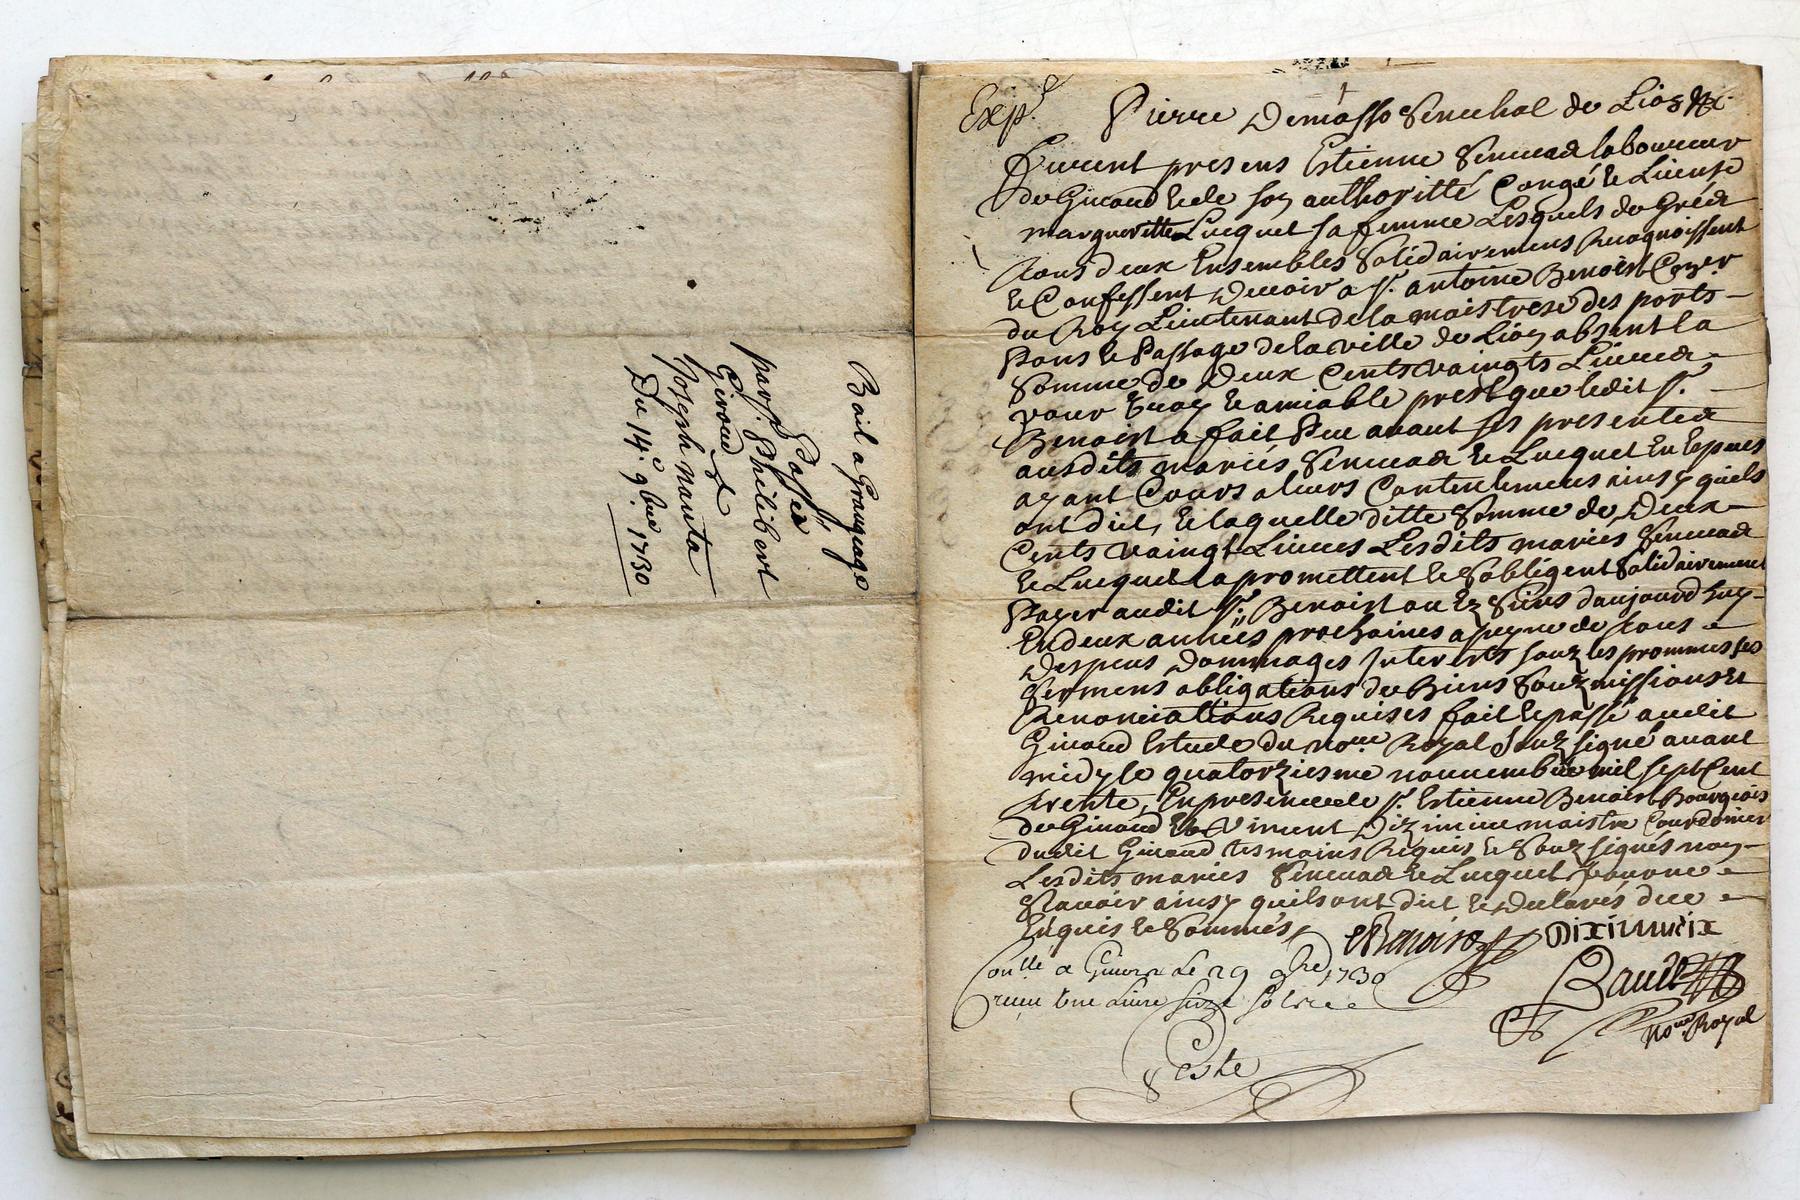 Bail a Grangeage
Passé
par Sr. Philibert
Giroud &
Joseph nanta
Du 14e. 9bre 1730
Exp.
Pierre Demasso Senechal de Lion &c.
Furent presens Estienne laboureur
de Givord & de son authoritté Congé & License
margueritte Lucquet sa femme Lesquels de Gré &
tous deux Ensembles Solidairemens Recognoissent
& Confessent Devoir a Sr. antoine Benoist Coner
du Roy Lieutenant de la maistrese des ports
Pons & Passage de la ville de Lion absent la
Somme de Deux Cents vaingts Livres
pour vray & amiable prest que ledit Sr.
Benoist a fait Peu avant ses presentes
ausdits mariés & Lucquet En Espues
ayant Cours a leurs Contentemens ainsy quils
ont dit, & laquelle ditte Somme de Deux
Cents vaingt Livres Lesdits mariés
& Lucquet promettent & Sobligent Solidairement
Payer audit Sr. Benoist ou Ez Siens daujourdhuy
En deux années prochaines a peyne de tous
Despens Dommages Interests souz les prommesses
Sermens obligations de Biens Souzmissions &
Renonciations Requises fait & passé audit
Givord Estude du nore Royal Souz signé avant
midy le quatorziesme nouvembre mil sept Cent
trente, En presence de Sr. Estienne Benoist Bourgeois
de Givord & Viment maistre Courdonier
dudit Givord tesmoins Requis & Souz signés non
Lesdits mariés & Lucquet pour ne
Sçavoir ainsy quils ont dit & Declarés de ce
Enquis & Sommés
EBenoist
Dizimieix
Conllé a Givors Le 29 9bre 1730
receu une Livre seize sols
Baudit
nore Royal
Peste